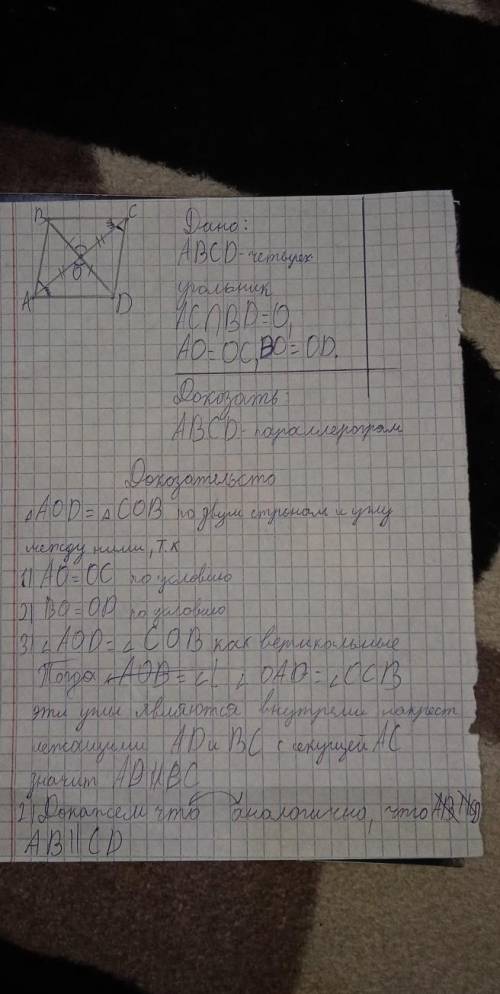 B C
O
A D
Дано:
ABCD - четырех
угольник
AC∩BD=O,
AO=OC, BO=OD.
Докозать:
ABCD - параллерограм
Докозательсто
△AOD=△COB по двум стронам и углу
между ними, т.к
1) AO=OC по условию
2) BO=OD по условию
3) ∠AOD=∠COB как вертикальные
Тогда ∠AOB=∠ ∠OAD=∠CCB
эти углы являются внутреми накрест
лежащими AD и BC с секущей AC
значит AD||BC
2) Докажем что аналогично, что
AB||CD